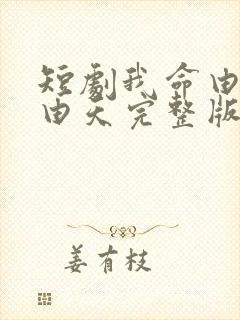 短劇我命由
由天完整版
姜有枝